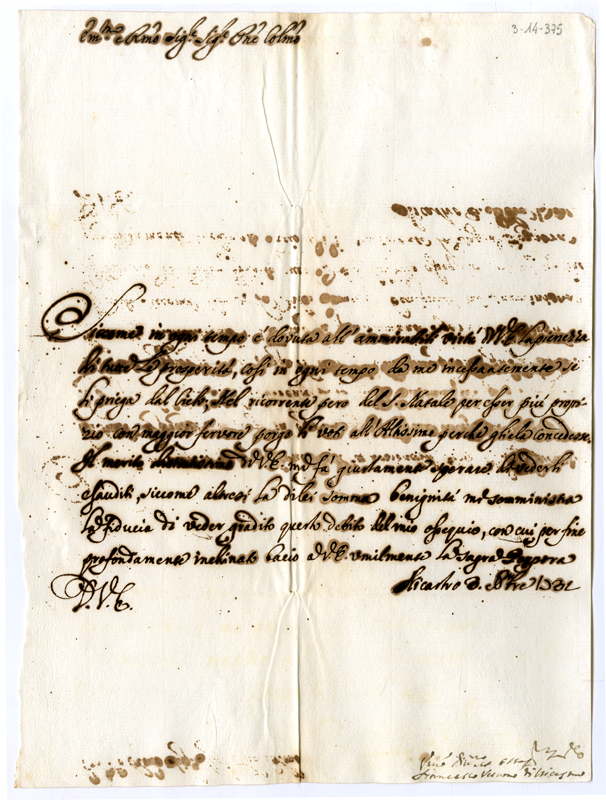 Em.mo e Rmo Sig.re Sig.re Pne Colmo
3-14-375
Siccome in ogni tempo è dovuta all'ammirabili virtù di V.E. la pienezza
di tutte le prosperità, così in ogni tempo da me incessantemente se
li priega dal Cielo; Nel ricorrente però del S. Natale per esser più propi-
zio con maggior fervore porgo li voti all'Altissimo perche ghele concedesse.
Il merito di V.E. mi fa giustamente sperare di vederli
esauditi, siccome altresi la di lei somma benignità mi somministra
la fiducia di veder gradito questo debito del mio ossequio, con cui per fine
profondamente inchinato bacio a V.E. umilmente la sagra Porpora
D.V.E.
Nicastro 8 Xbre
Francesco Vescovo di Nicastro